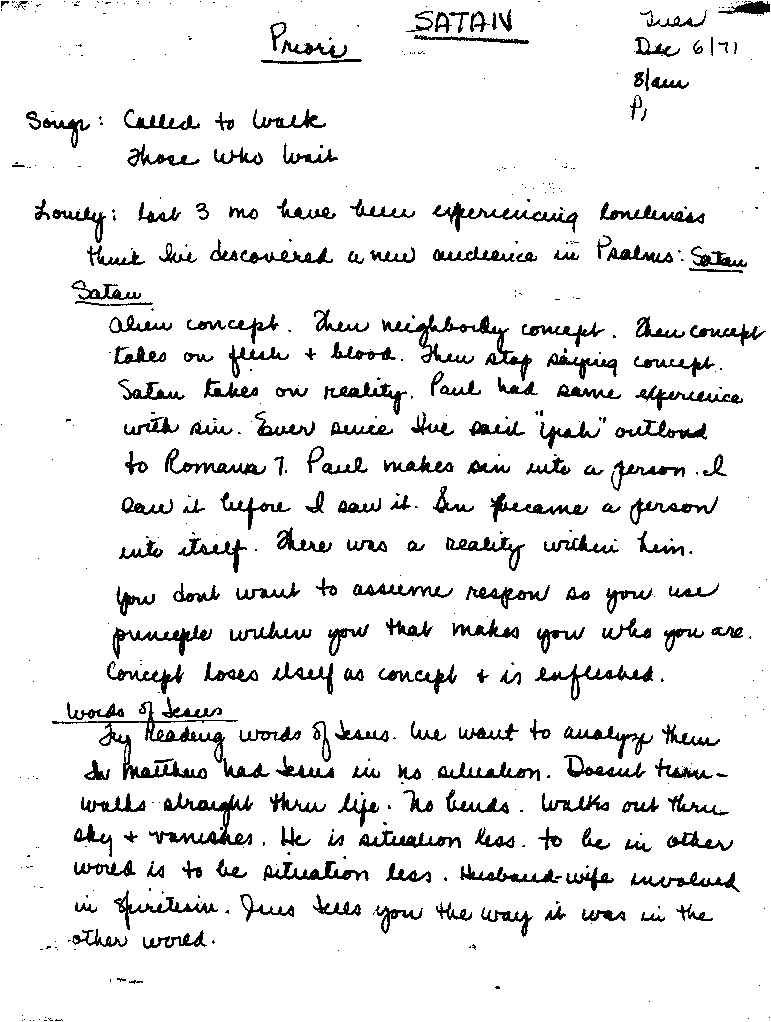 SATAN
Priors
Tues
Dec 6/71
8/am
P,
Songs: Called to Walk
Those Who Wait
Lonely: last 3 mo have been experiencing loneliness
think I've discovered a new audience in Psalms: Satan
Satan
Alien concept. Then neighborly concept. Then concept
takes on flesh + blood. Then stop saying concept.
Satan takes on reality. Paul had same experience
with sin. Ever since I've said "yeah" outloud
to Romans 7. Paul makes sin into a person. I
saw it before I saw it. Sin became a person
into itself. There was a reality within him.
You dont want to assume respon so you use
principle within you that makes you who you are.
Concept loses itself as concept + is enfleshed.
Words of Jesus
Try Reading words of Jesus. We want to analyze them
In Matthew had Jesus in no situation. Doesnt turn-
walks straight thru life. No bends. Walks out thru
sky + vanishes. He is situation less. to be in other
world is to be situation less. Husband-wife involved
in Spiritism. Jesus tells you the way it was in the
other world.